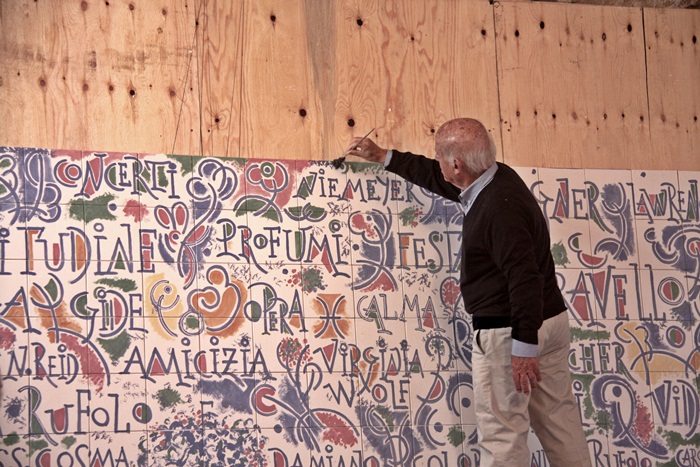 CONCERTI NIEMEYER
GNER LAUREN
ITUDINE PROFUMI FESTA
GIDE OPERA CALMA RAVELLO
W. REID AMICIZIA VIRGINIA CHER
WOLF VIDAL
RUFOLO
COSMA DAMIANO